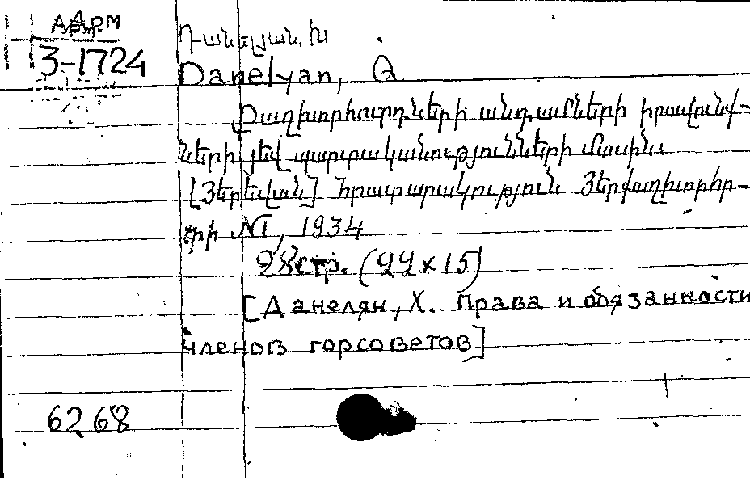 ААРМ
3-1724
Դանելյան, Խ
Danelyan, Q
Քաղխորհուրդների անդամների իրավունք-
ների յեվ պարտականությունների մասին։
[Յերեվան] Հրատարակություն Յերքաղխորհր-
դի №1, 1934
28 стр. (22×15)
[Данелян, Х. Права и обязанности
членов горсоветов]
6268